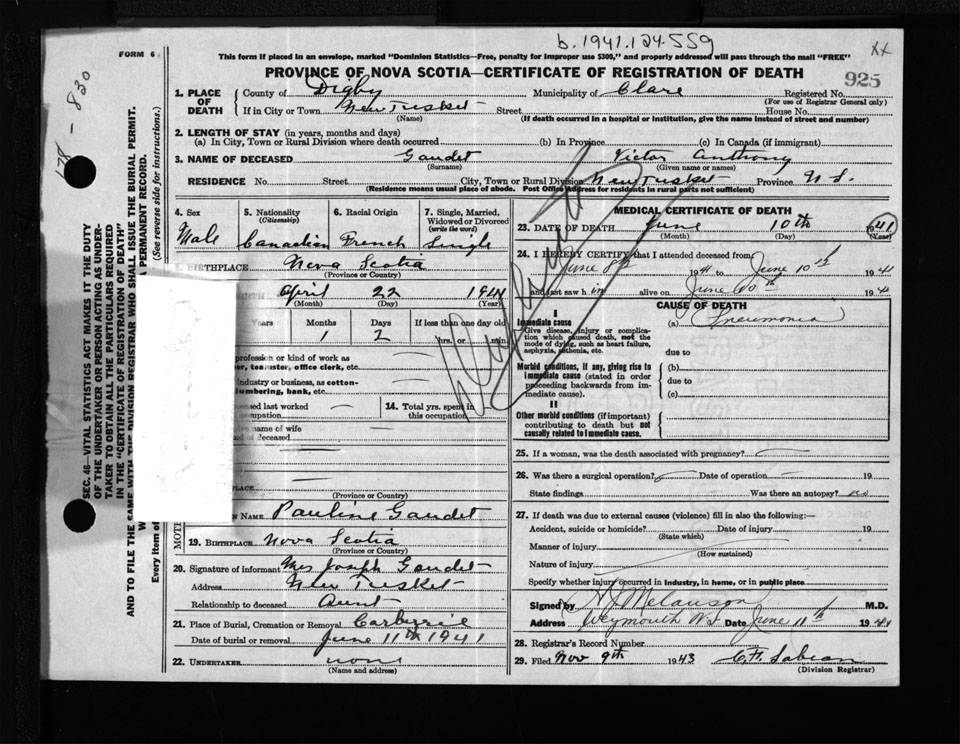 b. 1941.124.559
xx
FORM 6
This form if placed in an envelope, marked "Dominion Statistics—Free, penalty for improper use $300," and properly addressed will pass through the mail "FREE"
PROVINCE OF NOVA SCOTIA—CERTIFICATE OF REGISTRATION OF DEATH
925
1. PLACE OF DEATH
County of Digby Municipality of Clare Registered No.
(For use of Registrar General only)
If in City or Town New Tusket Street House No.
(Name) (If death occurred in a hospital or institution, give the name instead of street and number)
2. LENGTH OF STAY (in years, months and days)
(a) In City, Town or Rural Division where death occurred (b) In Province (c) In Canada (if immigrant)
3. NAME OF DECEASED Gaudet Victor Anthony
(Surname) (Given name or names)
RESIDENCE No. Street City, Town or Rural Division New Tusket Province N.S.
(Residence means usual place of abode. Post Office Address for residents in rural parts not sufficient)
4. Sex
Male
5. Nationality
(Citizenship)
Canadian
6. Racial Origin
French
7. Single, Married, Widowed or Divorced
(write the word)
Single
BIRTHPLACE Nova Scotia
(Province or Country)
April 22 1941
(Month) (Day) (Year)
Years Months Days If less than one day old
1 2 hrs. or min.
profession or kind of work as
er, teamster, office clerk, etc.
industry or business, as cotton-
lumbering, bank, etc.
last worked
occupation
14. Total yrs. spent in this occupation
name of wife
of deceased
PLACE
(Province or Country)
MOTH
NAME Pauline Gaudet
19. BIRTHPLACE Nova Scotia
(Province or Country)
20. Signature of informant Mrs Joseph Gaudet
Address New Tusket
Relationship to deceased Aunt
21. Place of Burial, Cremation or Removal
Date of burial or removal June 11th 1941
22. UNDERTAKER none
(Name and address)
MEDICAL CERTIFICATE OF DEATH
23. DATE OF DEATH June 10th 1941
(Month) (Day) (Year)
24. I HEREBY CERTIFY that I attended deceased from
June 8th 1941 to June 10th 1941
and last saw him alive on June 10th 1941
CAUSE OF DEATH
I
Immediate cause (a) Pneumonia
Give disease, injury or complication which caused death, not the mode of dying, such as heart failure, asphyxia, asthenia, etc.
due to
Morbid conditions, if any, giving rise to immediate cause (stated in order proceeding backwards from immediate cause).
(b)
due to
(c)
II
Other morbid conditions (if important) contributing to death but not causally related to immediate cause.
25. If a woman, was the death associated with pregnancy?
26. Was there a surgical operation? Date of operation 19
State findings Was there an autopsy? no
27. If death was due to external causes (violence) fill in also the following:—
Accident, suicide or homicide? Date of injury 19
(State which)
Manner of injury
(How sustained)
Nature of injury
Specify whether injury occurred in industry, in home, or in public place
Signed by H J Melanson M.D.
Address Weymouth N.S. Date June 11th 1941
28. Registrar's Record Number
29. Filed Nov 9th 1943
(Division Registrar)
SEC. 46—VITAL STATISTICS ACT MAKES IT THE DUTY
OF THE UNDERTAKER OR PERSON ACTING AS UNDER-
TAKER TO OBTAIN ALL THE PARTICULARS REQUIRED
IN THE "CERTIFICATE OF REGISTRATION OF DEATH"
AND TO FILE THE SAME WITH THE DIVISION REGISTRAR WHO SHALL ISSUE THE BURIAL PERMIT.
PERMANENT RECORD.
Every item of
(See reverse side for instructions.)